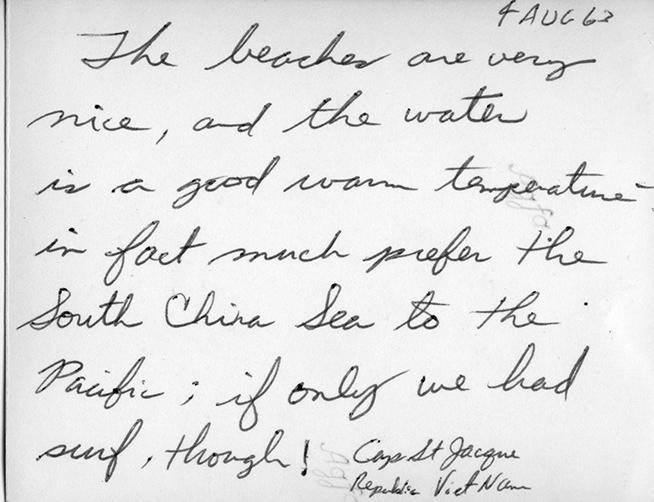 4 AUG 63
The beaches are very
nice, and the water
is a good warm temperature -
in fact much prefer the
South China Sea to the
Pacific; if only we had
surf, though!
Cap St Jacque
Republic Viet Nam